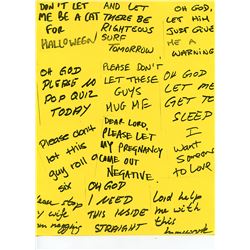 DON'T LET
ME BE A CAT
FOR
HALLOWEEN
AND LET
THERE BE
RIGHTEOUS
SURF
TOMORROW
OH GOD,
LET HIM
JUST GIVE
ME A
WARNING
OH GOD
PLEASE NO
POP QUIZ
TODAY
PLEASE DON'T
LET THESE
GUYS
MUG ME
OH GOD
LET ME
GET TO
SLEEP
Please don't
let this
guy roll a
six
DEAR LORD,
PLEASE LET
MY PREGNANCY
CAME OUT
NEGATIVE.
I
want
someone
to Love
stop
my wife
from nagging
OH GOD
I NEED
THIS INSIDE
STRAIGHT
Lord help
me with
this